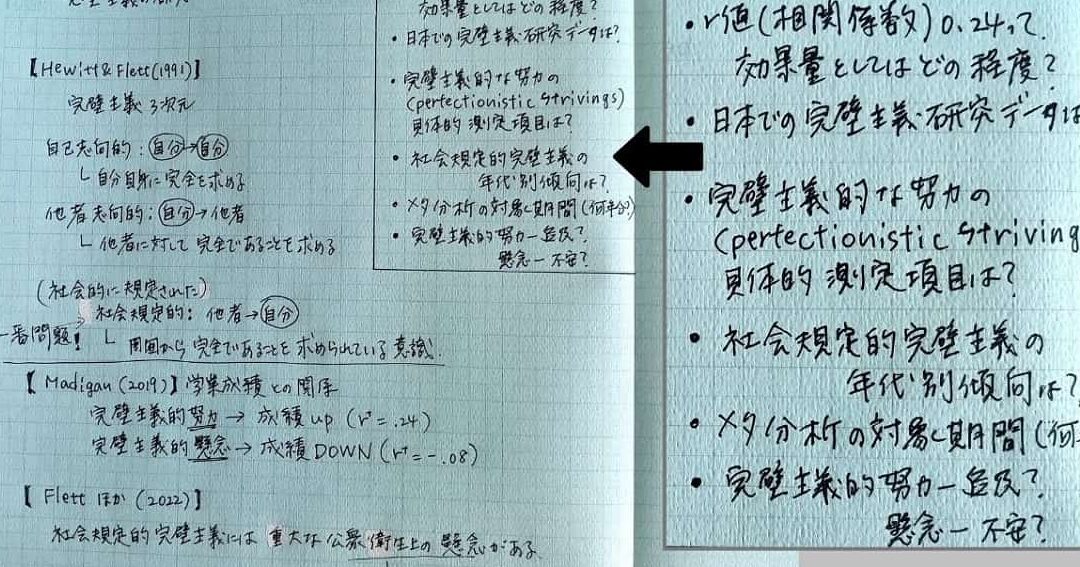 【Hewitt & Flett(1991)】
完璧主義 3次元
自己志向的：自分→自分
└ 自分自身に完全を求める
他者志向的：自分→他者
└ 他者に対して完全であることを求める
(社会的に規定された)
社会規定的：他者→自分
一番問題！
└ 周囲から完全であることを求められている意識.
【Madigan (2019)】学業成績との関係
完璧主義的努力 → 成績up (r⁺=.24)
完璧主義的懸念 → 成績DOWN (r⁺=-.08)
【Flett ほか (2022)】
社会規定的完璧主義には 重大な公衆衛生上の懸念がある.
効果量としてはどの程度？
・日本での完璧主義研究データは？
・完璧主義的な努力の
(perfectionistic strivings)
具体的測定項目は？
・社会規定的完璧主義の
年代別傾向は？
・メタ分析の対象期間(何年分?)
・完璧主義的努力ー
懸念ー不安？
・r値(相関係数)0.24って
効果量としてはどの程度？
・日本での完璧主義研究データは
・完璧主義的な努力の
(perfectionistic striving
具体的 測定項目は？
・社会規定的完璧主義の
年代別傾向は？
・メタ分析の対象期間(何
・完璧主義的努力ー
懸念ー不安？